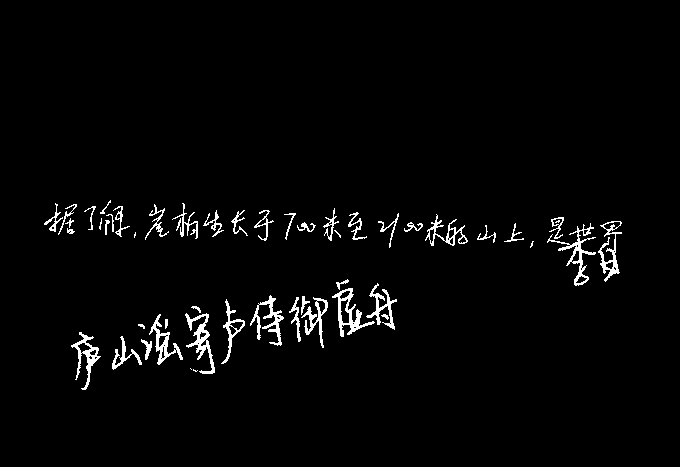 据了解,崖柏生长于700米至2100米的山上,是世罕
李白
庐山谣寄卢侍御虚舟